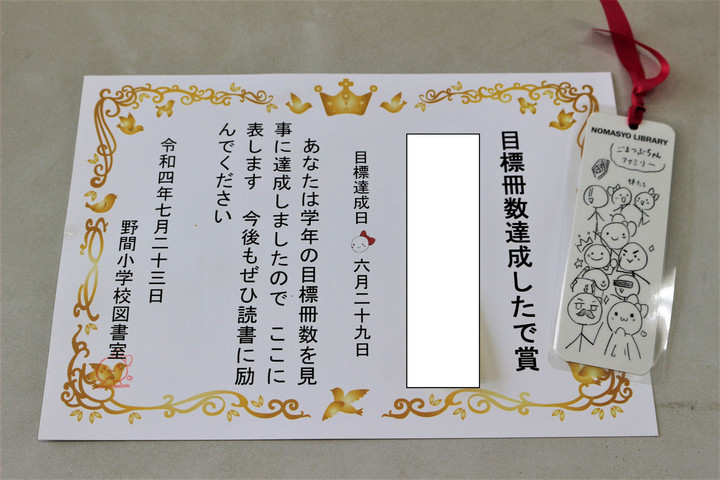 目標冊数達成したで賞
目標達成日
六月二十九日
あなたは学年の目標冊数を見
事に達成しましたので ここに
表します 今後もぜひ読書に励
んでください
令和四年七月二十三日
野間小学校図書室
NOMASYO LIBRARY
ごまつぶちゃん
ファミリー